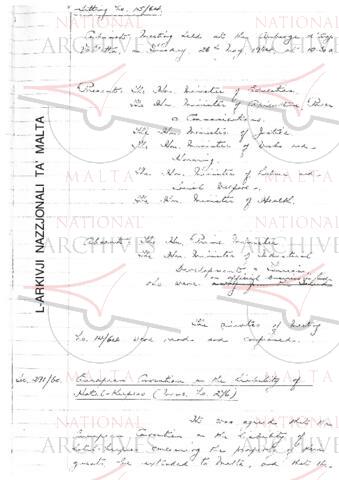 Sitting No. 15/64.
Cabinet Meeting held at the Auberge d'Aragon
on Tuesday, 26th May, 1964, at 10.30
Present: The Hon. Minister of Education.
The Hon. Minister of Agriculture, Power
& Communications.
The Hon. Minister of Justice.
The Hon. Minister of Works and
Housing.
The Hon. Minister of Labour and
Social Welfare.
The Hon. Minister of Health.
Absent: The Hon. Prime Minister
The Hon. Minister of Industrial
Development & Tourism
who were on official business in
The minutes of meeting
No. 14/64 were read and confirmed.
European Convention on the Liability of
Hotel-Keepers (Memo. No. 276)
It was agreed that the
European Convention on the Liability of
Hotel-Keepers concerning the property of their
guests, be extended to Malta, and that the
L-ARKIVJI NAZZJONALI TA' MALTA
NATIONAL
ARCHIVES
MALTA